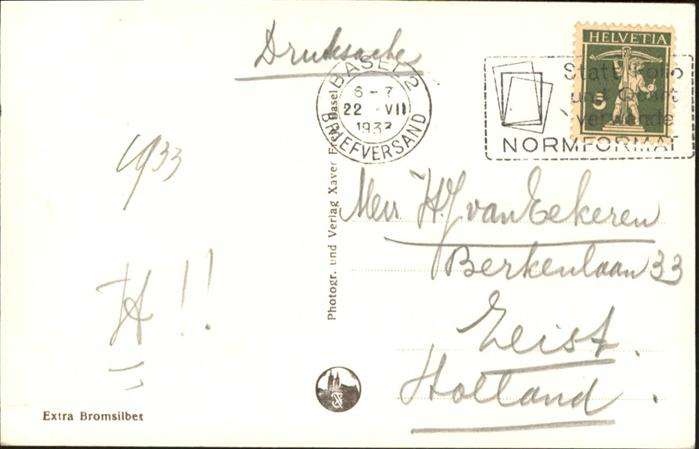 Drucksache
BASEL 2
6-7
22 VII
1933
BRIEFVERSAND
HELVETIA
5
Statt Folio
und Quart
verwende
NORMFORMAT
1933
Photogr. und Verlag Xaver Frey, Basel
H. J. van Eekeren
Berkenlaan 33
Zeist.
Holland.
Extra Bromsilber